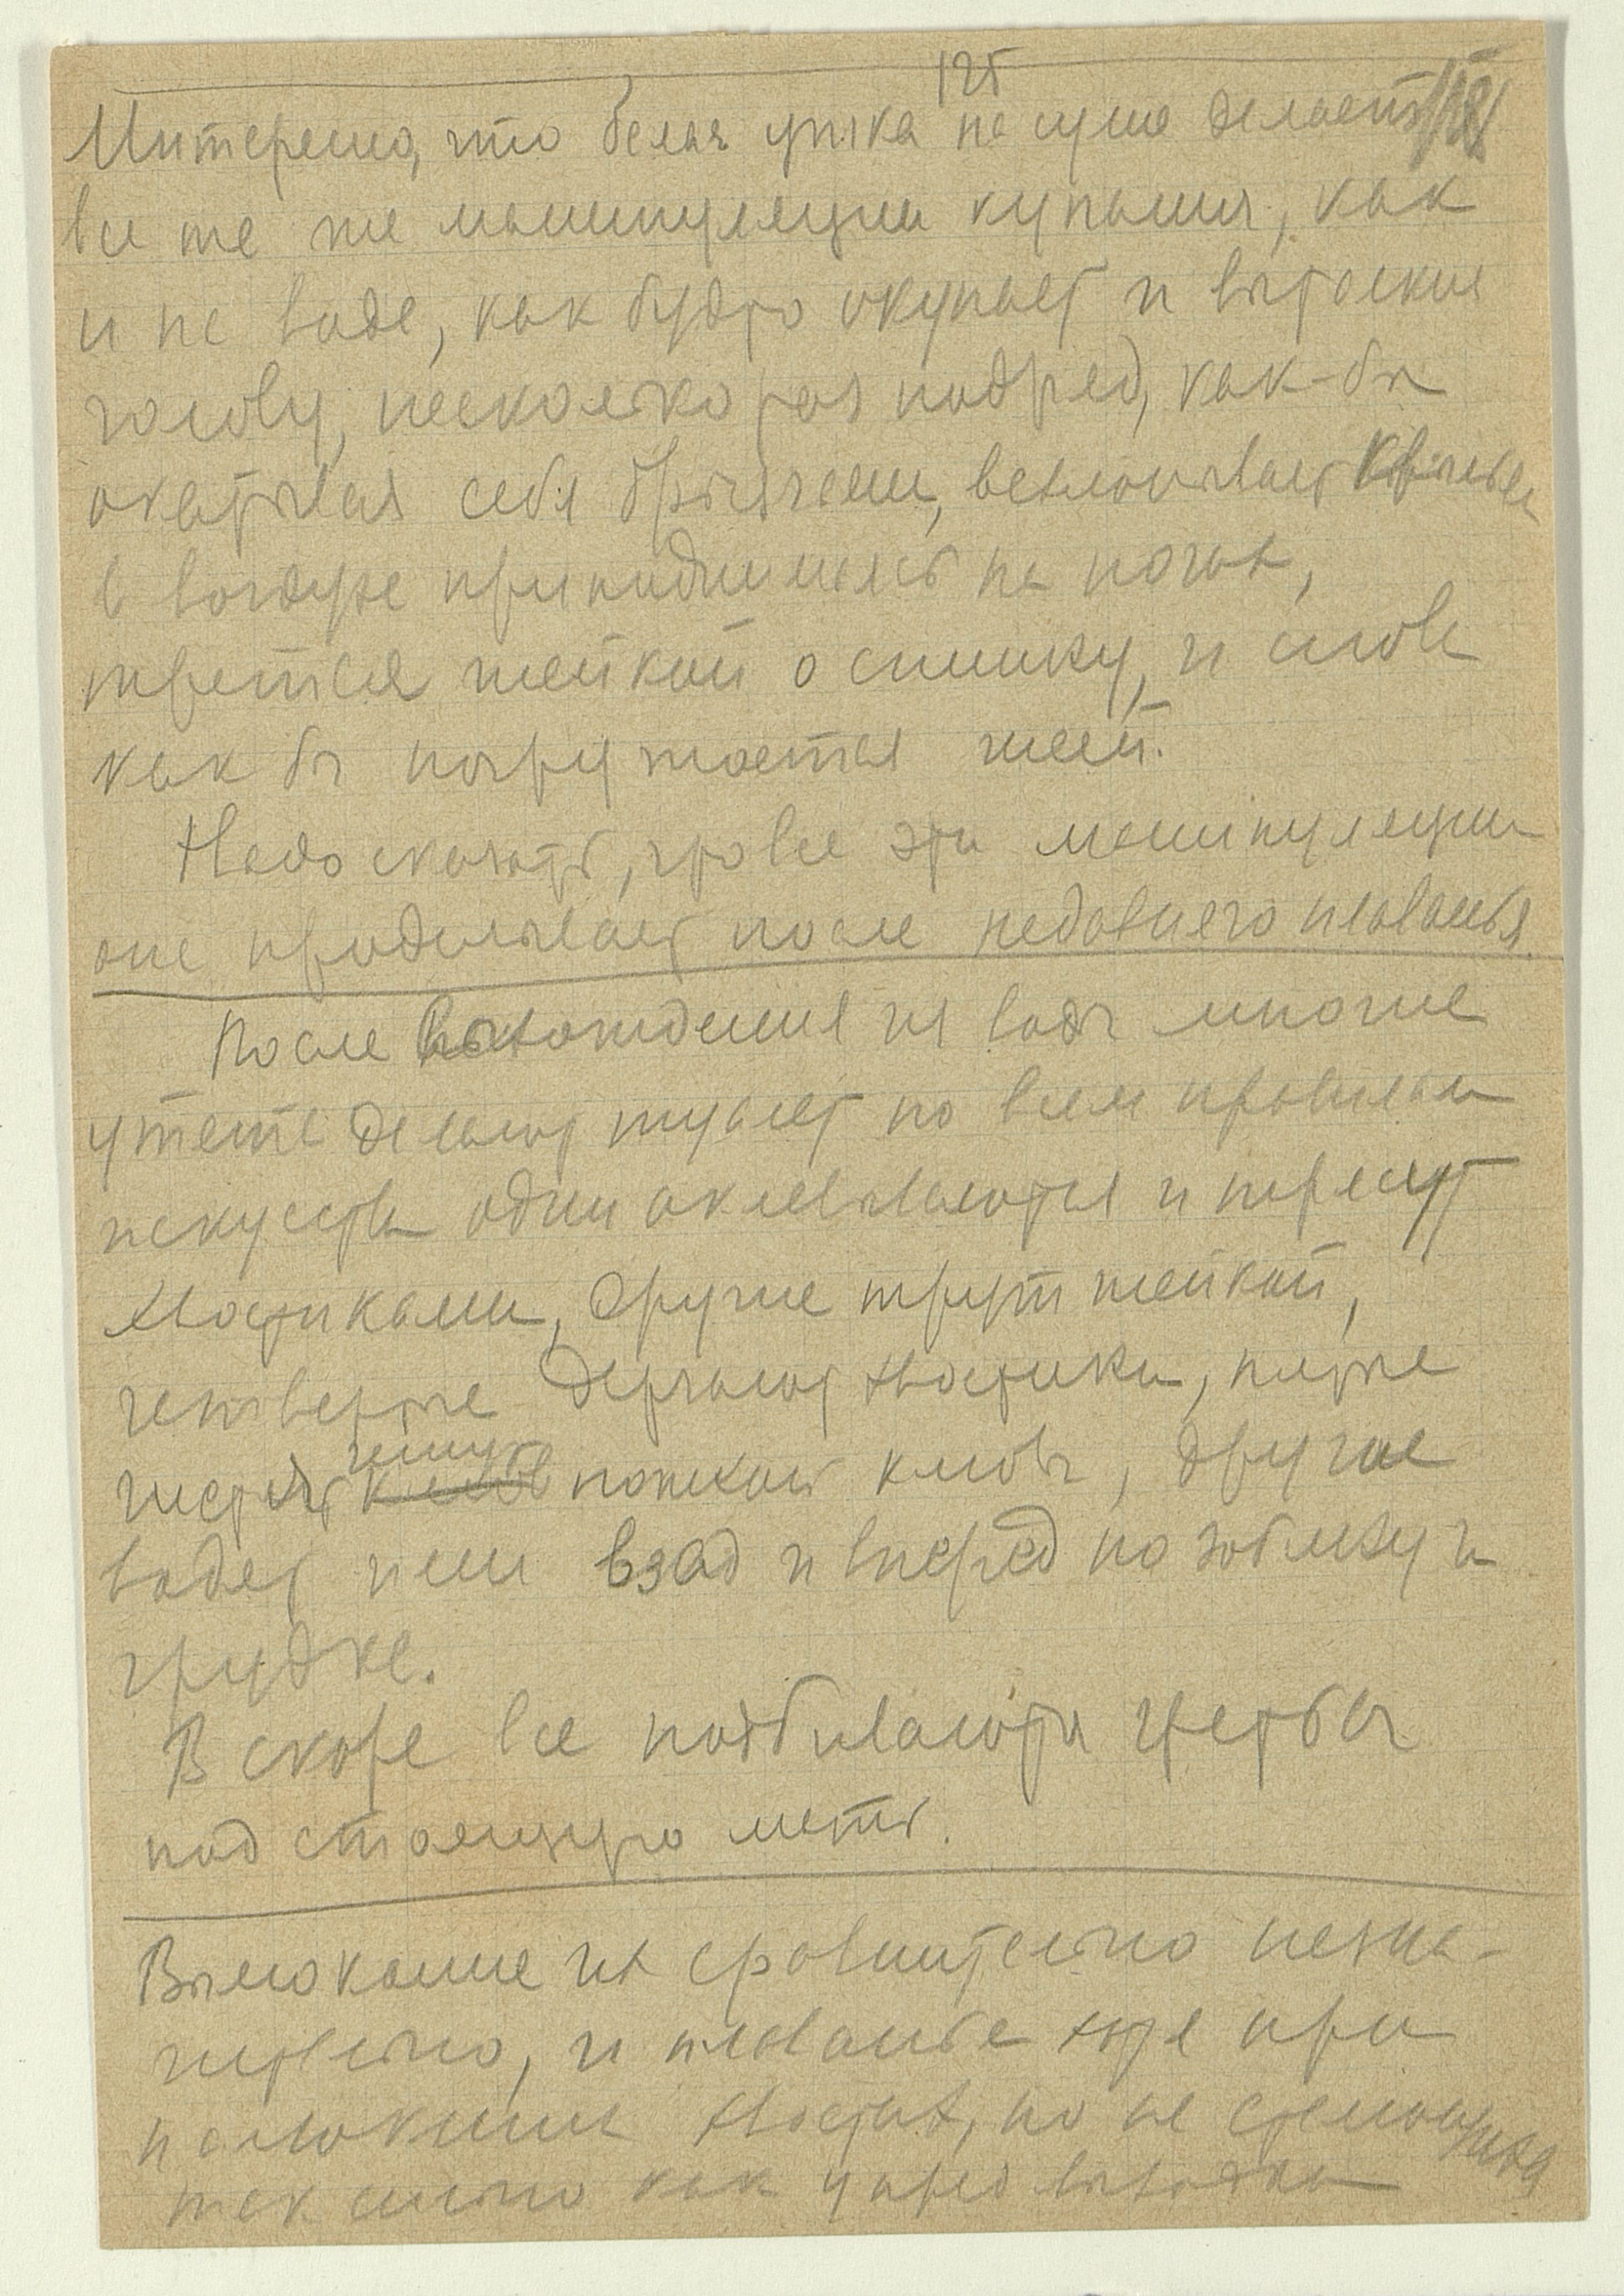 125
Интересно, что белая утка на суше делает
все те же манипуляции купанья, как
и на воде, как будто окунает и вытаскив
голову, несколько раз подряд, как-бы
окатывая себя брызгами, всхлопывает крыльями
в воздухе приподнимаясь на ногах,
трется шейкой о спинку, и снова
как бы погружается шеей.
Надо сказать, что все эти манипуляции
она проделывает после недавнего плаванья.
После выхождения из воды многие
утята делают туалет по всем правилам
искусства одни оклевываются и трясут
хвостиками, другие трут шейкой,
четвертые дергают хвостики, пятые
чистят ножкой клюв, другие
водят ими взад и вперед по зобику и
грудке.
Вскоре все подбиваются
под стоящую мать.
Вымокание их сравнительно незна-
чительно, и плаванье хотя при
намокании хвостик, но не
так сильно как у пред выводка